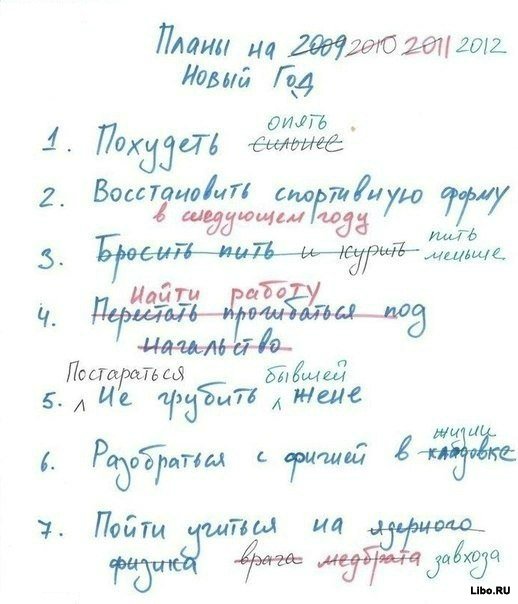 Планы на 2009 2010 2011 2012
Новый Год
опять
1. Похудеть сильнее
2. Восстановить спортивную форму
в следующем году
пить
3. Бросить пить и курить меньше
Найти работу
4. Перестать прогибаться под
начальство
Постараться бывшей
5. Не грубить жене
жизни
6. Разобраться с фигнёй в кладовке
7. Пойти учиться на ядерного
физика врача медбрата завхоза
Libo.RU